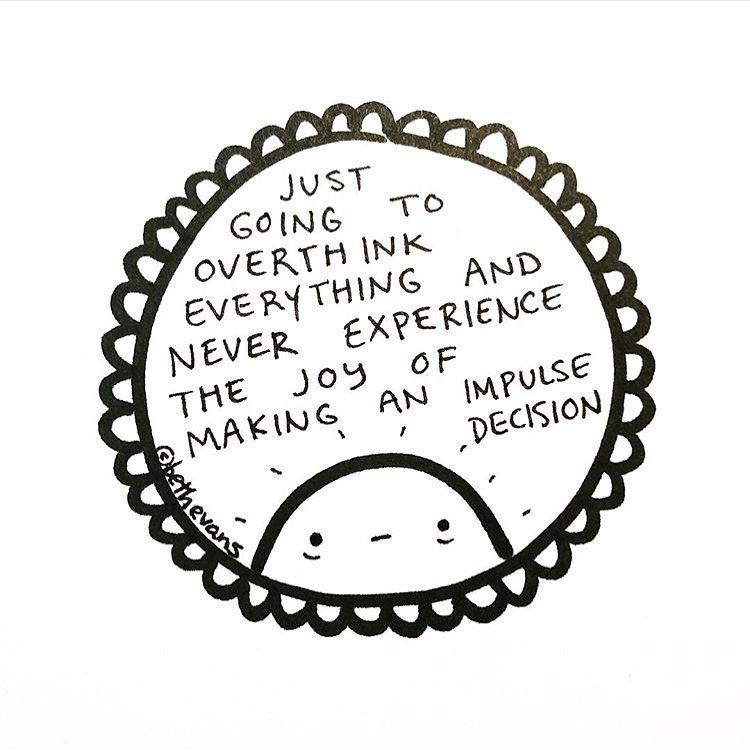 JUST
GOING TO
OVERTHINK
EVERYTHING AND
NEVER EXPERIENCE
THE JOY OF
MAKING AN IMPULSE
DECISION
©bethevans